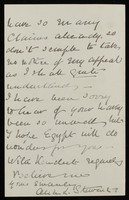 have so many
claims already, so
don't scruple to take
no notice of my appeal
as I shall quite
understand.
I have been sorry
to hear of your having
been so unwell but
I hope Egypt will do
wonders for you.
With kindest regards
Believe me
Yours sincerely